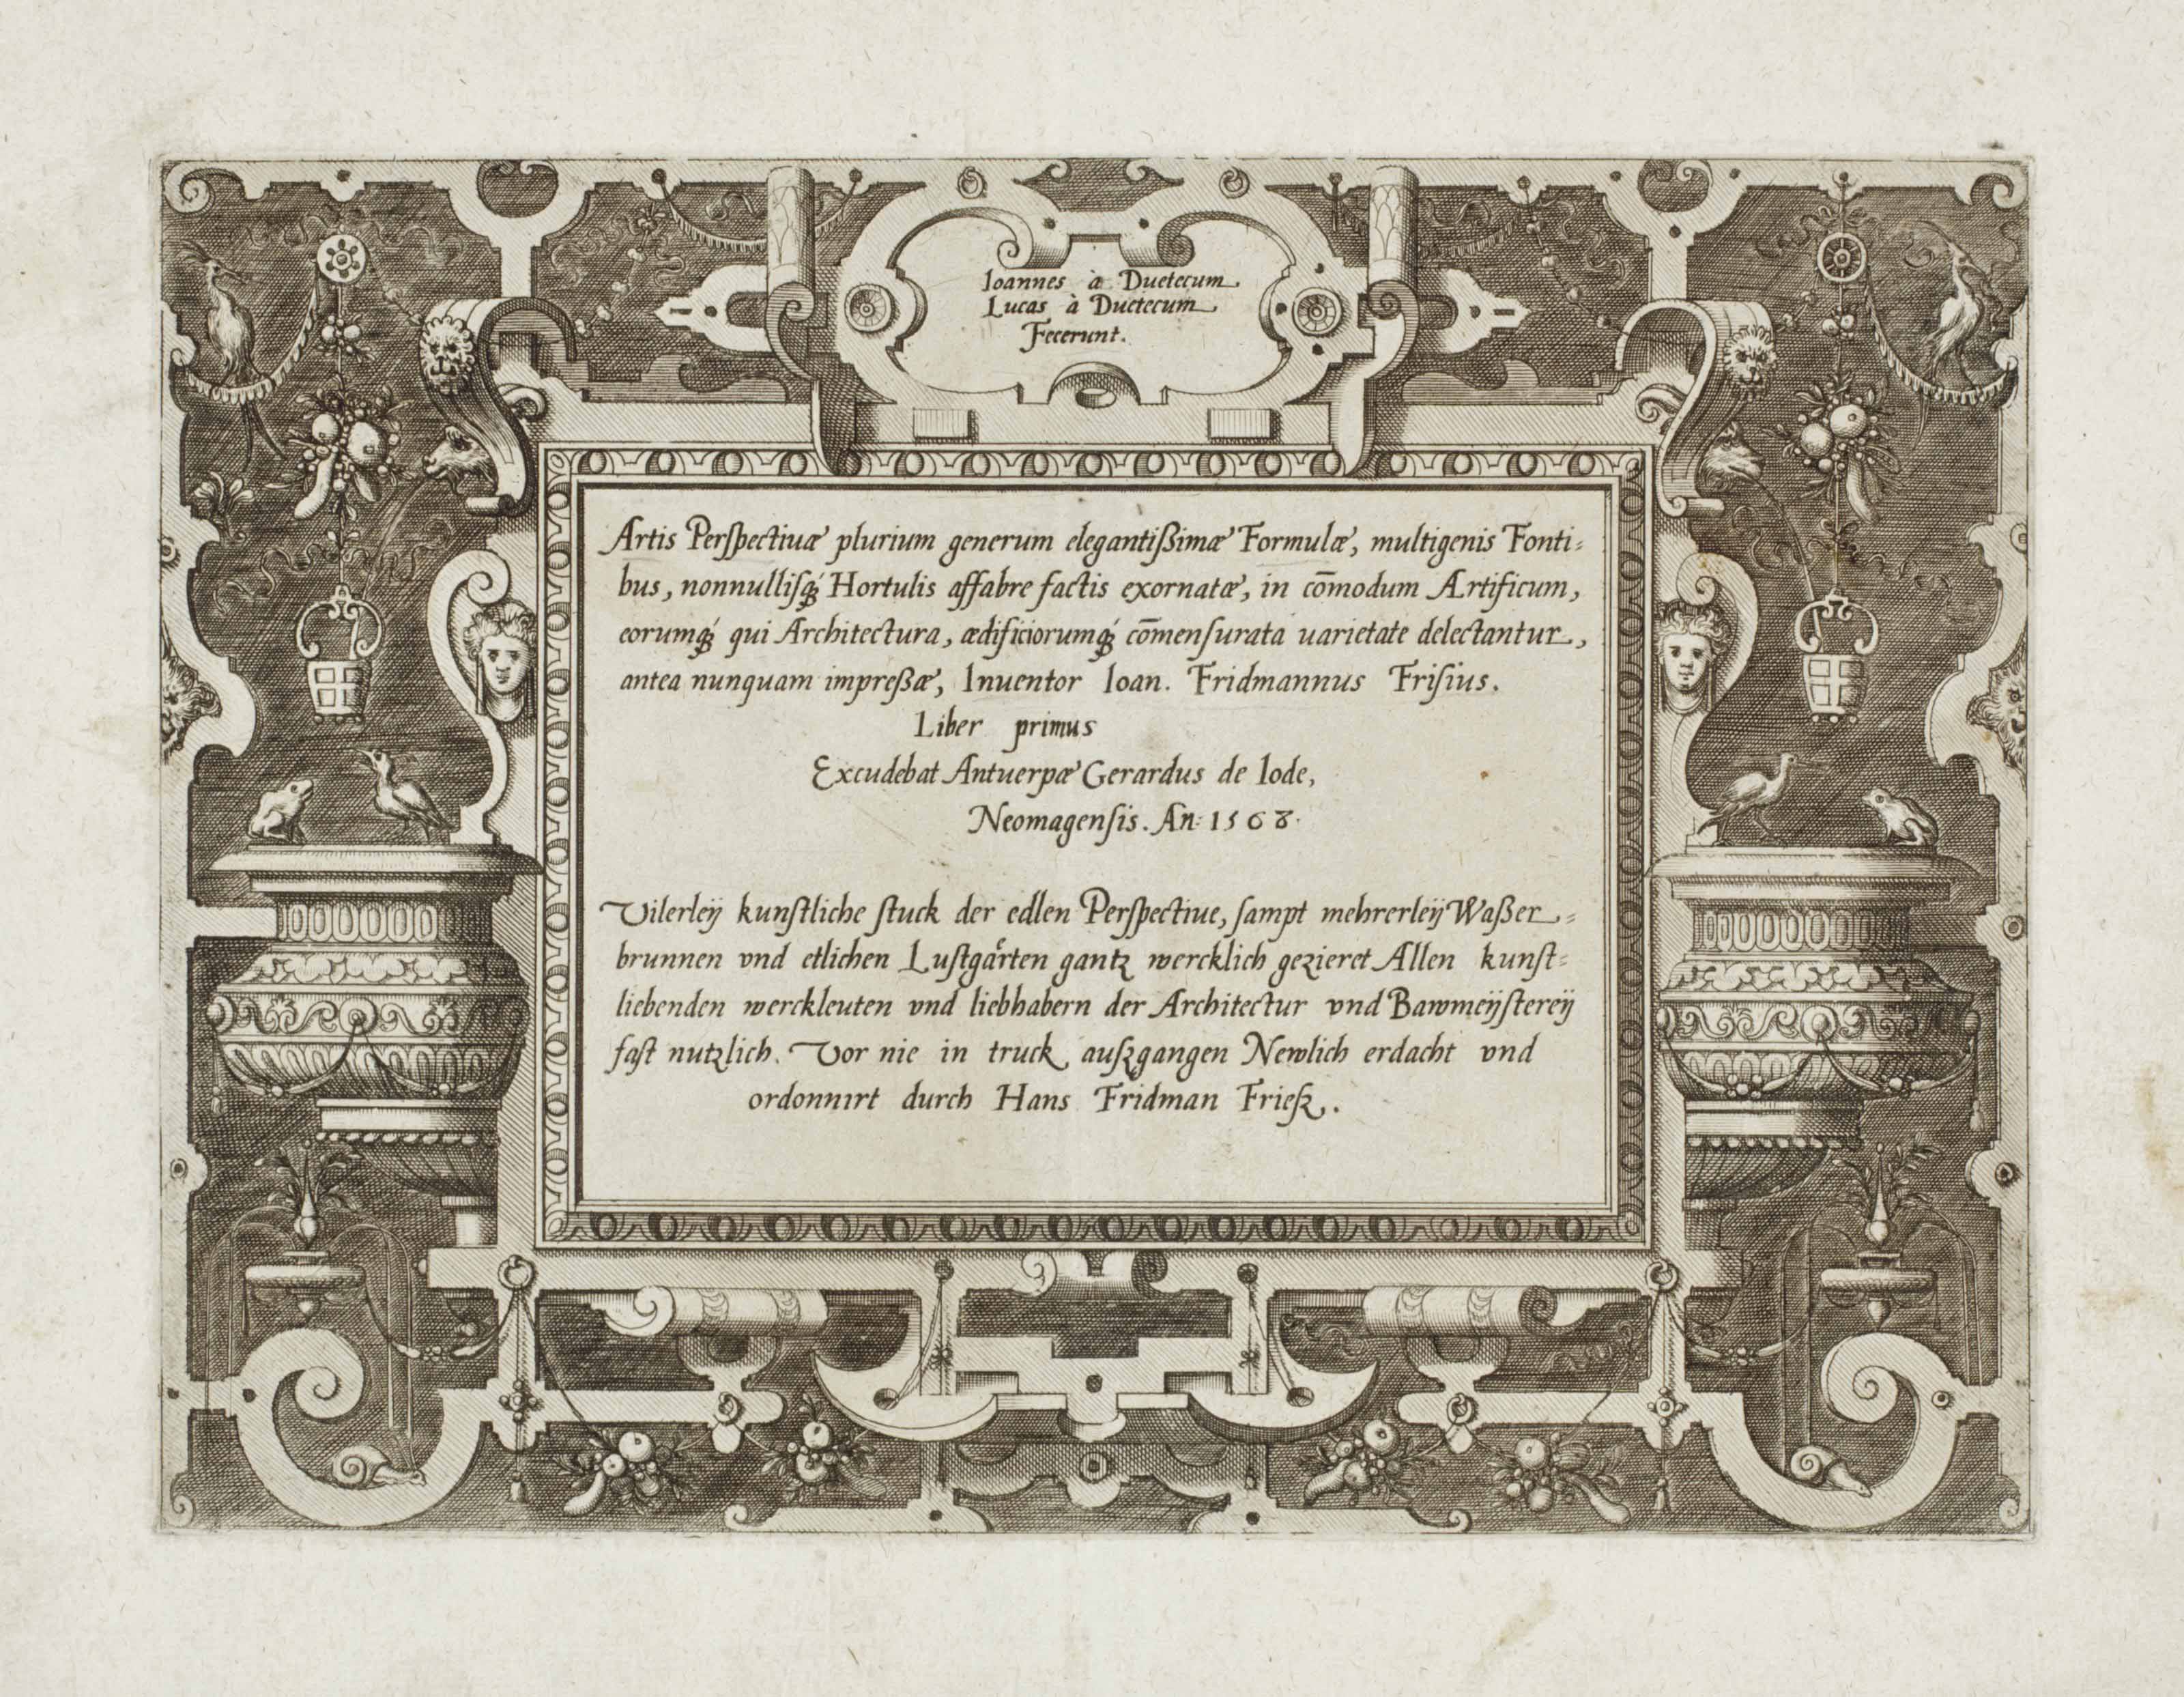 Ioannes à Duetecum
Lucas à Duetecum
Fecerunt.
Artis Perſpectiuæ plurium generum elegantißimæ Formulæ, multigenis Fonti=
bus, nonnulliſqꝫ́ Hortulis affabre factis exornatæ, in cōmodum Artificum,
eorumqꝫ́ qui Architectura, ædificiorumqꝫ́ cōmenſurata uarietate delectantur,
antea nunquam impreßæ, Inuentor Ioan. Fridmannus Friſius.
Liber primus
Excudebat Antuerpæ Gerardus de Iode,
Neomagenſis. An: 1568.
Vilerleÿ kunſtliche ſtuck der edlen Perſpectiue, ſampt mehrerleÿ Waßer=
brunnen vnd etlichen Luſtgaͤrten gantz wercklich gezieret Allen kunſt=
liebenden werckleuten vnd liebhabern der Architectur vnd Bawmeÿſtereÿ
faſt nutzlich. Vor nie in truck auſzgangen Newlich erdacht vnd
ordonnırt durch Hans Fridman Frieſz.